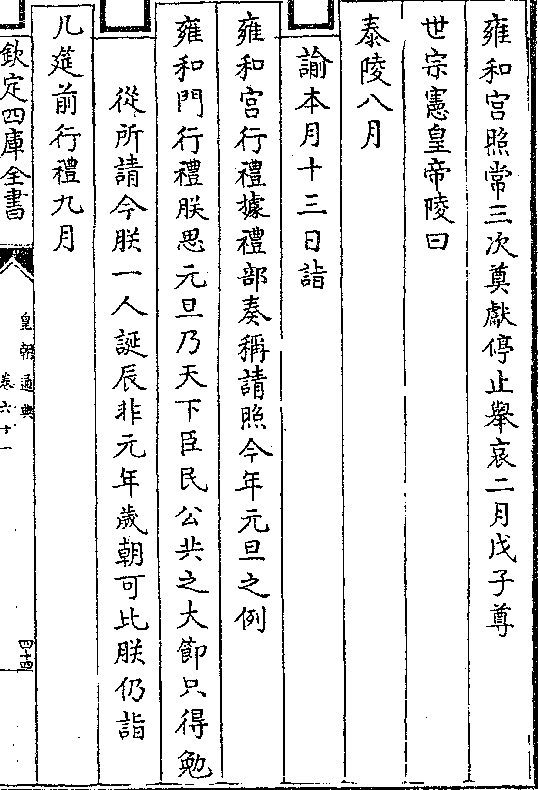 雍和宫照常三次奠獻停止舉哀二月戊子尊
世宗憲皇帝陵曰
泰陵八月
諭本月十三日詣
雍和宫行禮據禮部奏稱請照今年元旦之例
雍和門行禮朕思元旦乃天下臣民公共之大節只得勉
從所請今朕一人誕辰非元年歲朝可比朕仍詣
几筵前行禮九月
欽定四庫全書
皇朝通典
卷六十一
四十四